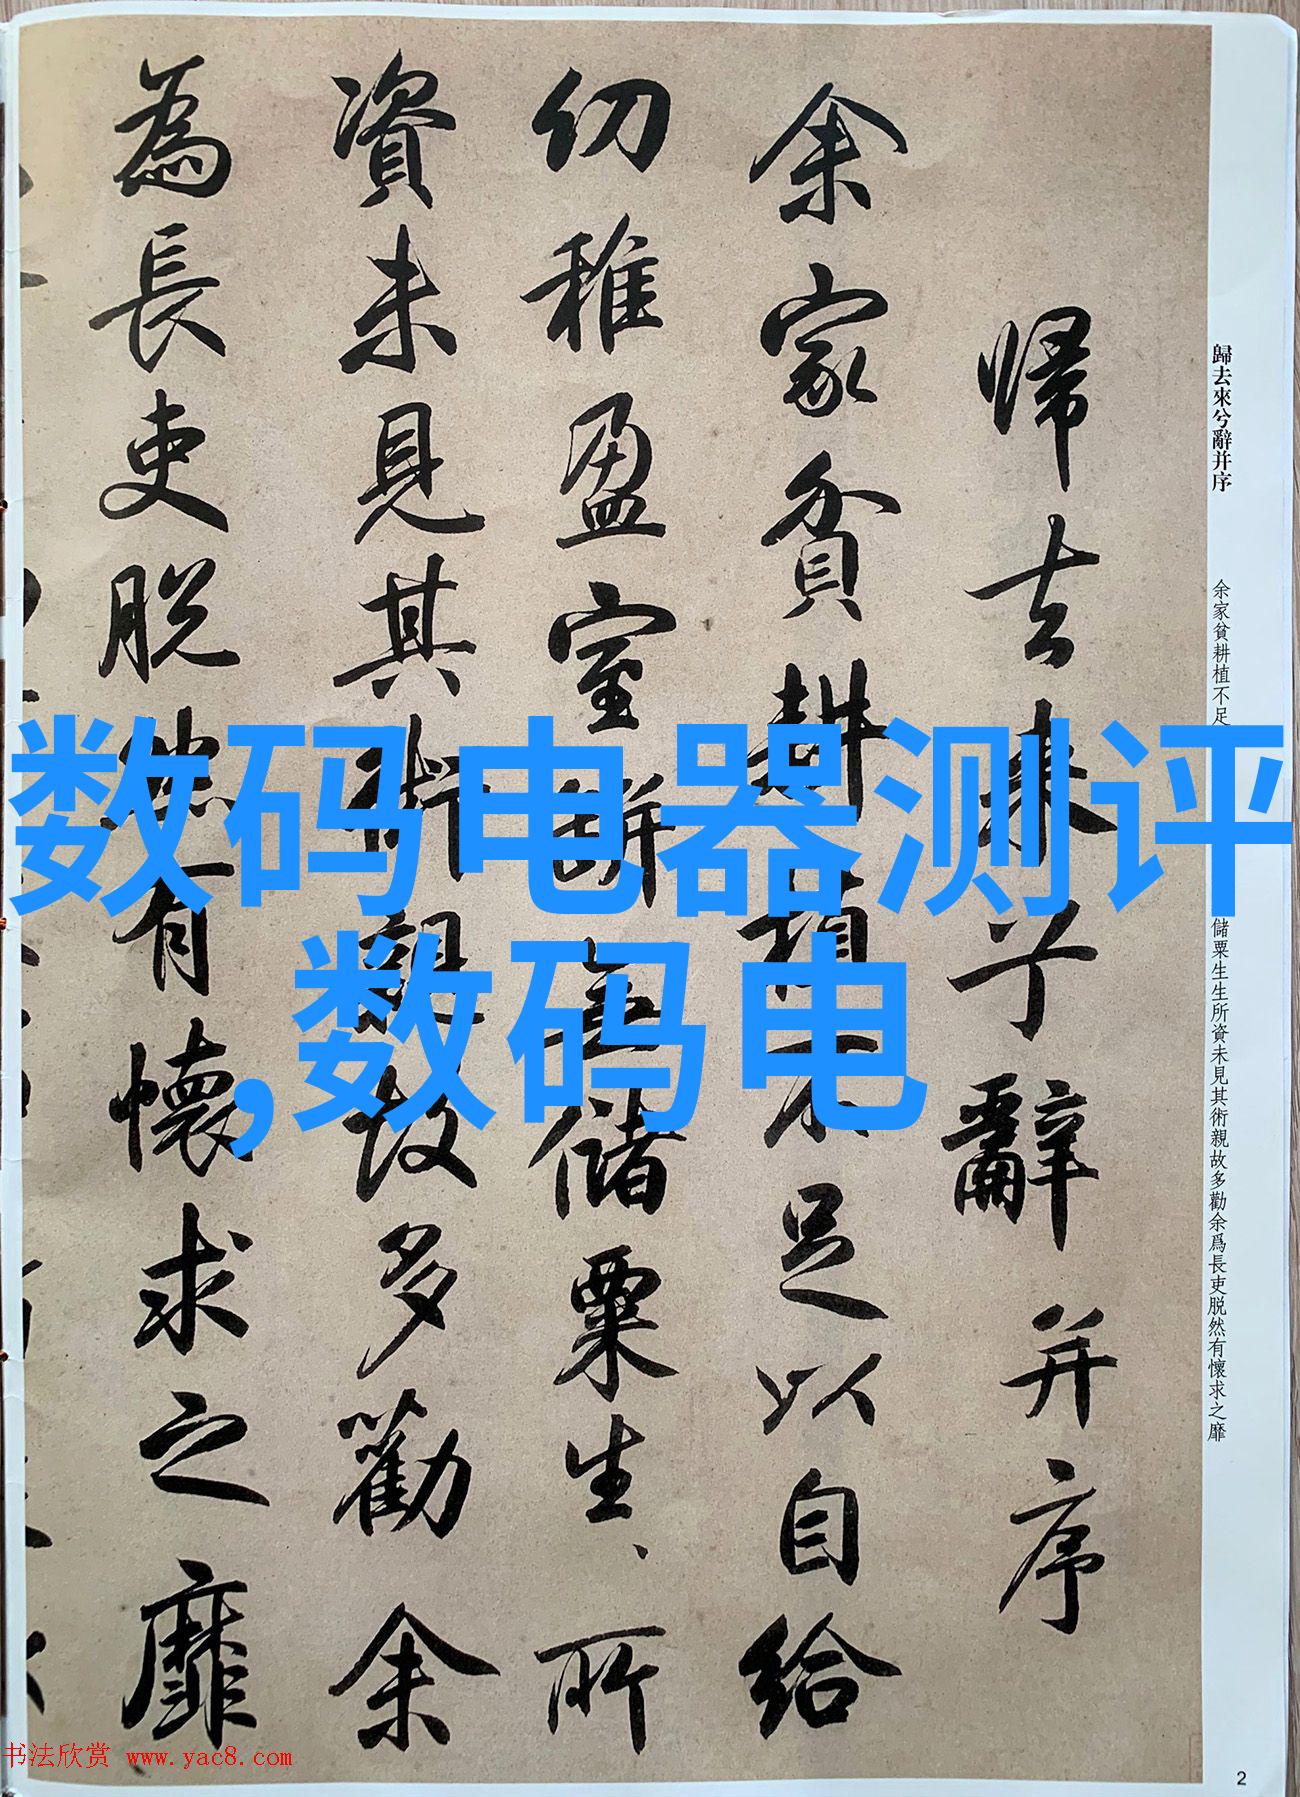 歸去來兮辭并序
余家貧耕植不足
儲粟生生所資未見其術親故多勸余爲長吏脱然有懷求之靡
歸去来兮辭并序
余家貧耕植不足以自給
幼稚盈室缾無儲粟生、所
資未見其術親故多勸余
為長吏脱然有懷求之靡
数码电器测评
,数码电
书法欣赏 www.yac8.com
2